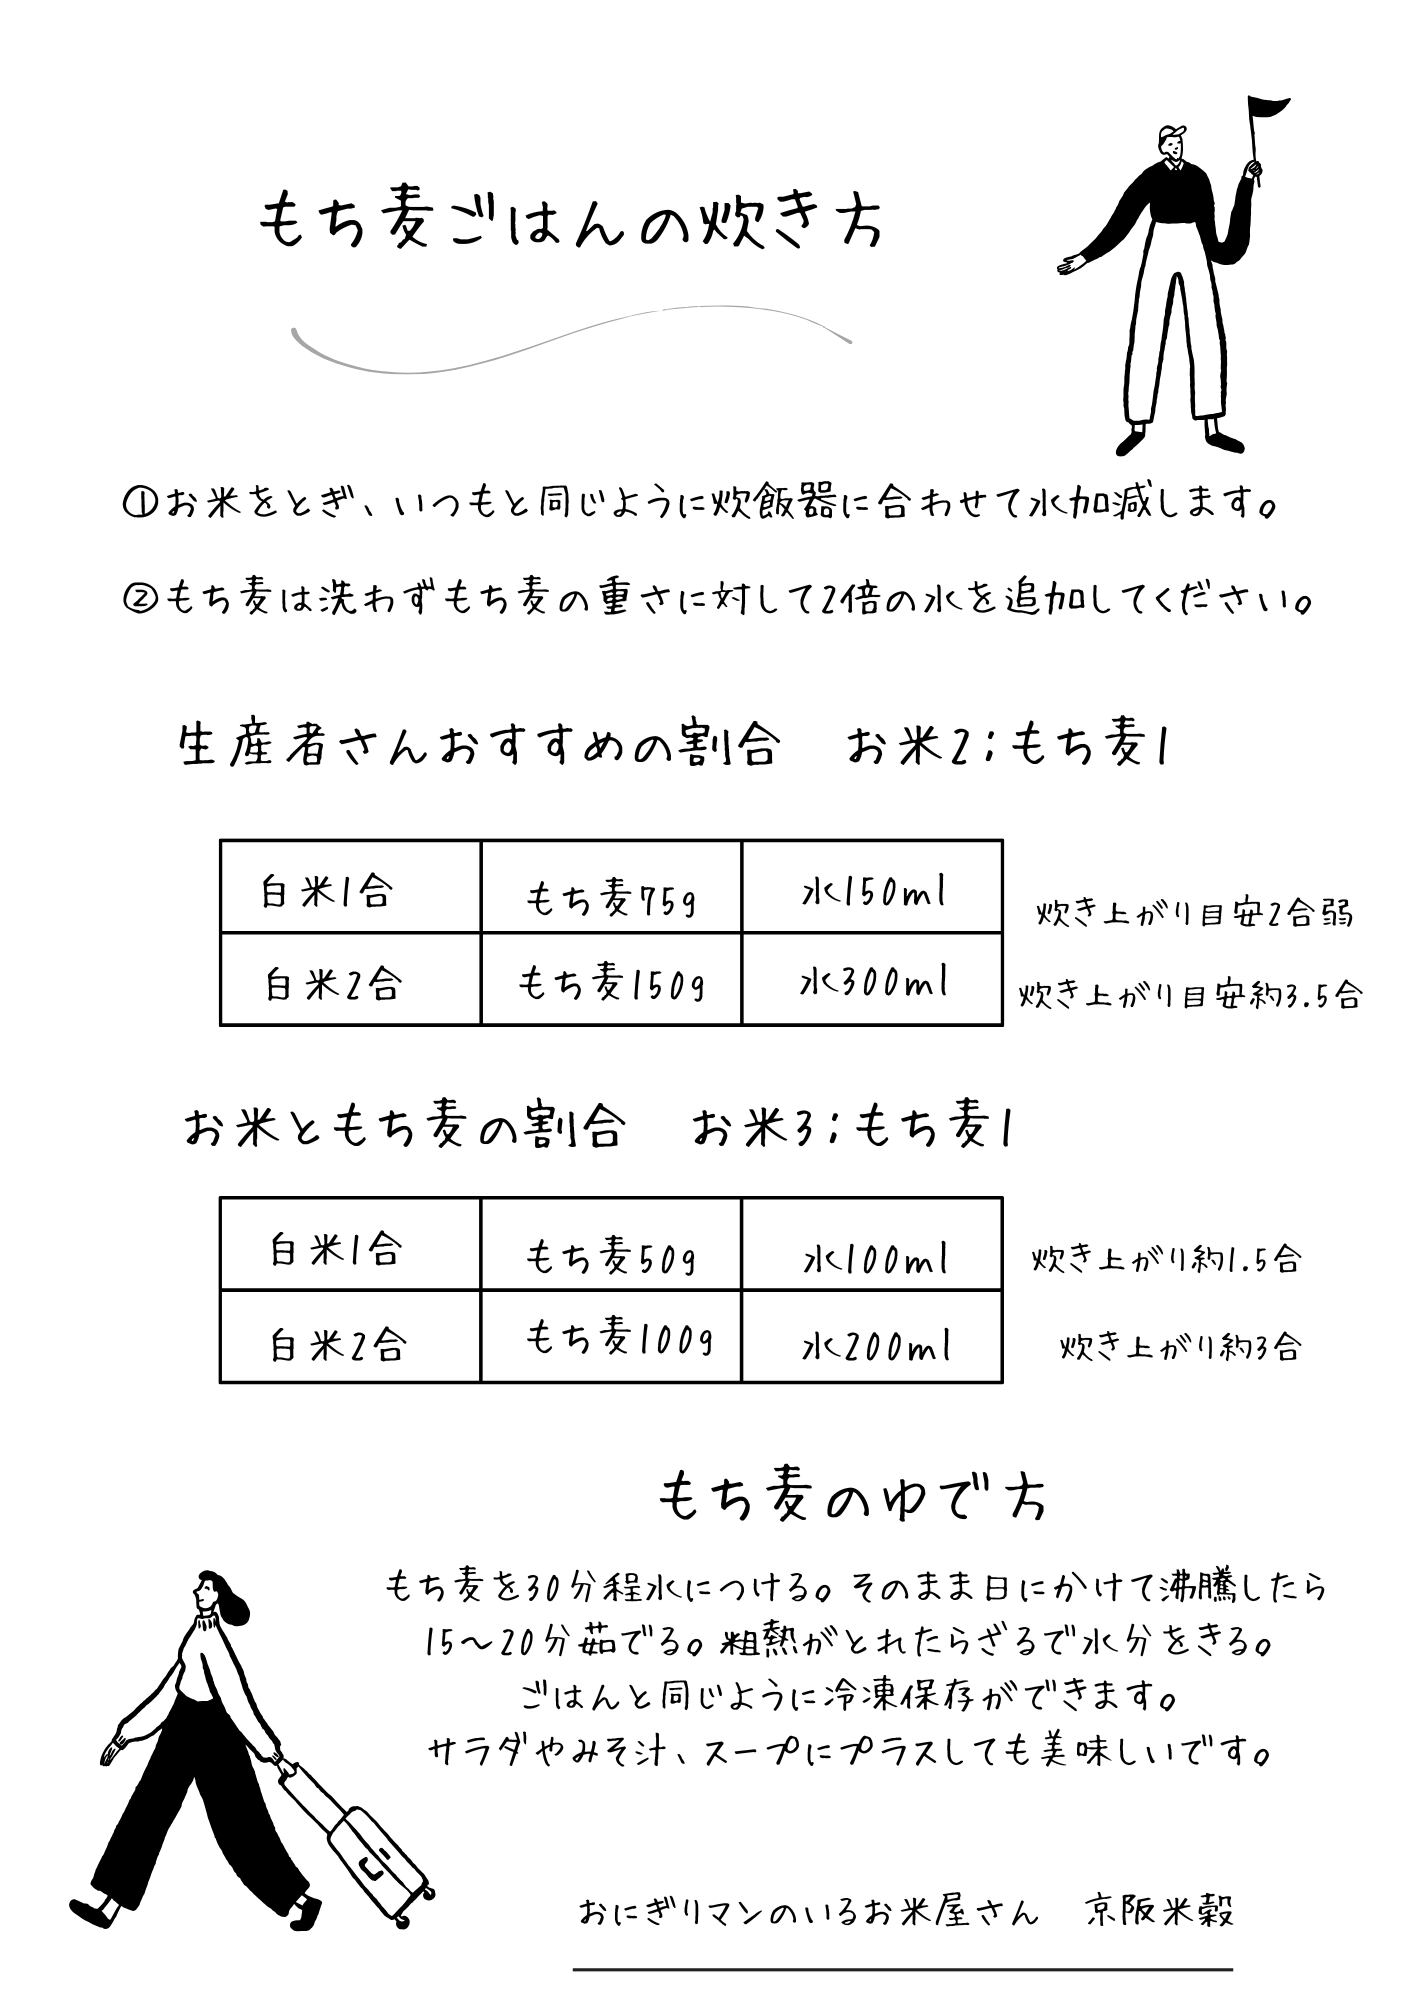 もち麦ごはんの炊き方
①お米をとぎ、いつもと同じように炊飯器に合わせて水加減します。
②もち麦は洗わずもち麦の重さに対して2倍の水を追加してください。
生産者さんおすすめの割合　お米2;もち麦1
白米1合 もち麦75g 水150ml 炊き上がり目安2合弱
白米2合 もち麦150g 水300ml 炊き上がり目安約3.5合
お米ともち麦の割合　お米3;もち麦1
白米1合 もち麦50g 水100ml 炊き上がり約1.5合
白米2合 もち麦100g 水200ml 炊き上がり約3合
もち麦のゆで方
もち麦を30分程水につける。そのまま日にかけて沸騰したら
15〜20分茹でる。粗熱がとれたらざるで水分をきる。
ごはんと同じように冷凍保存ができます。
サラダやみそ汁、スープにプラスしても美味しいです。
おにぎりマンのいるお米屋さん　京阪米穀